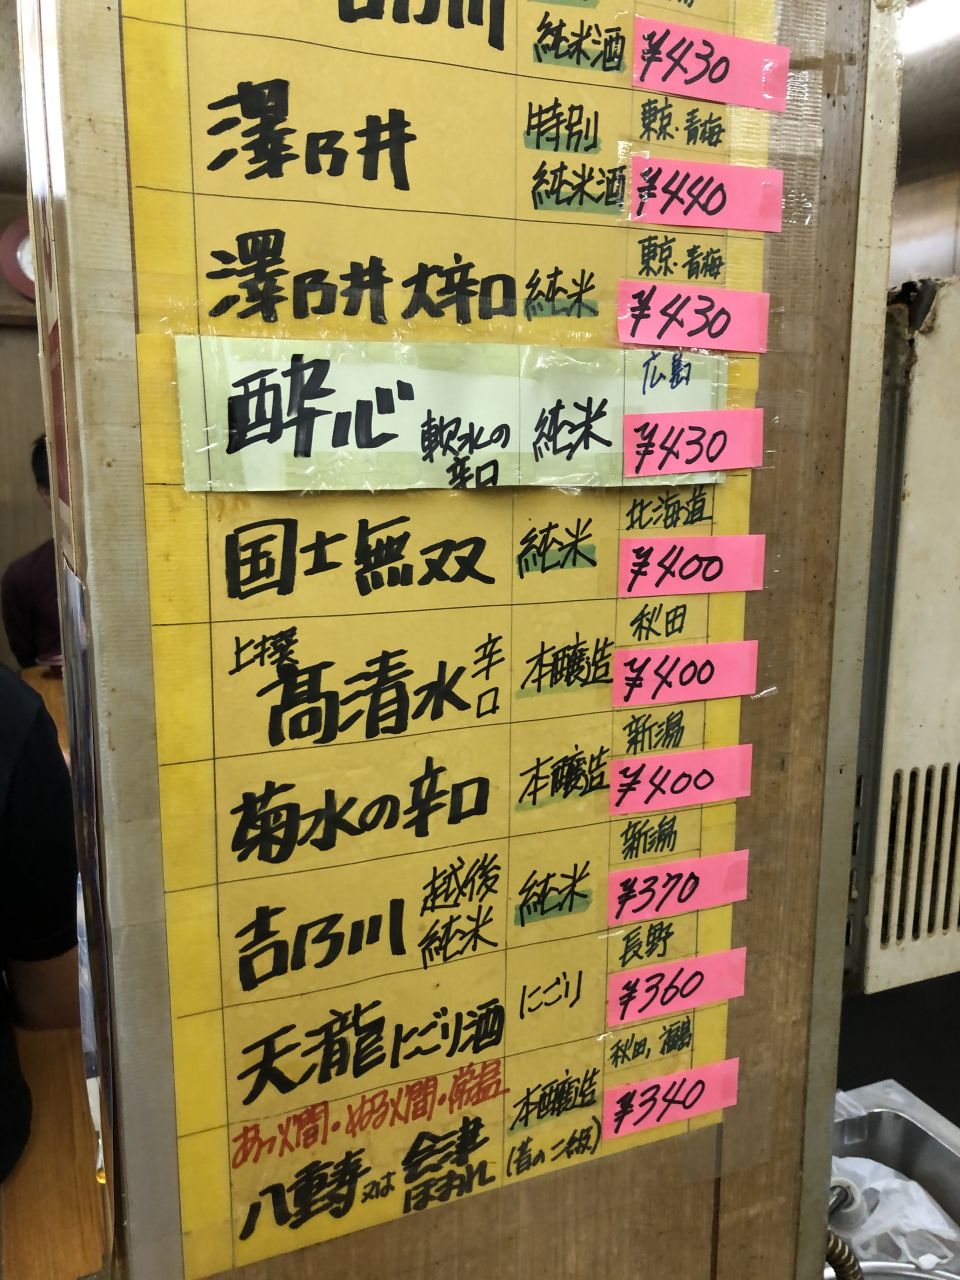 純米酒 ¥430
澤乃井 特別 純米酒 東京・青梅 ¥440
澤乃井 大辛口 純米 東京・青梅 ¥430
酔心 軟水の 辛口 純米 広島 ¥430
国士無双 純米 北海道 ¥400
上撰 高清水 辛口 本醸造 秋田 ¥400
菊水の辛口 本醸造 新潟 ¥400
吉乃川 越後 純米 純米 新潟 ¥370
天瀧にごり酒 にごり 長野 ¥360
あつ燗・ぬる燗・常温
八重寿 又は 会津 ほまれ 本醸造 (昔の二級) 秋田、福島 ¥340